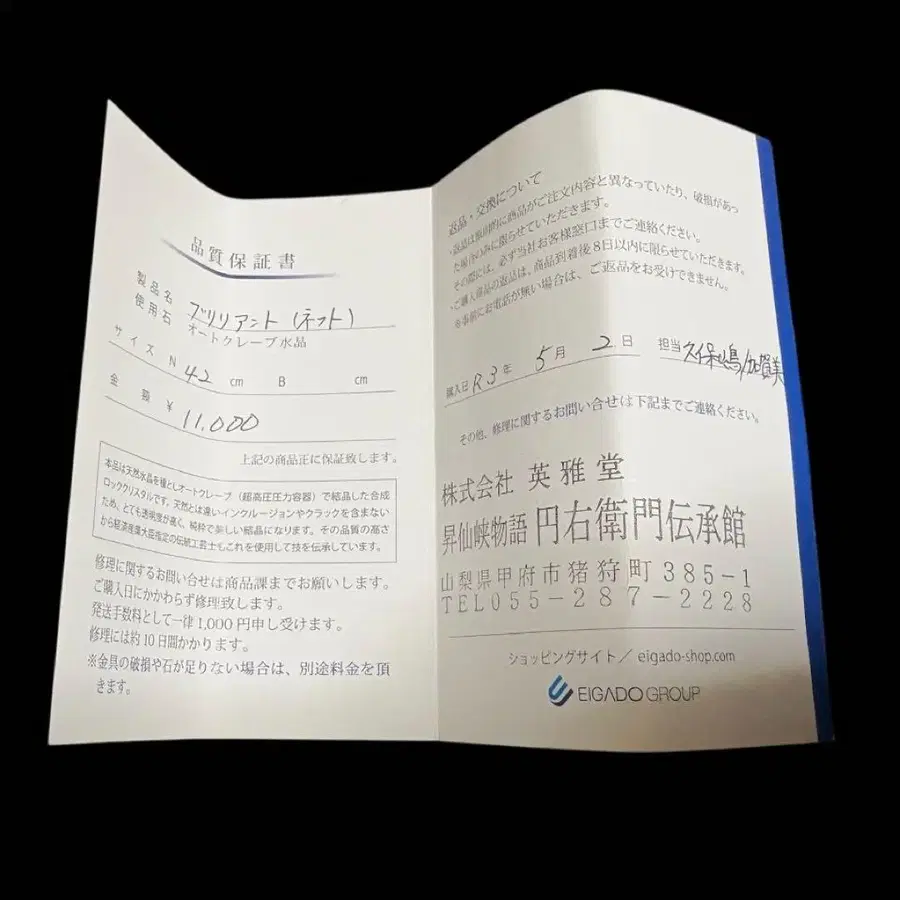 品質保証書
製品名 ブリリアント(ネット)
使用石 オートクレーブ水晶
サイズ N 42 cm B cm
金額 ¥ 11,000
上記の商品正に保証致します。
本品は天然水晶を種としオートクレーブ(超高圧圧力容器)で結晶した合成
ロッククリスタルです。天然とは違いインクルージョンやクラックを含まない
ため、とても透明度が高く、純粋で美しい結晶になります。その品質の高さ
から経済産業大臣指定の伝統工芸士もこれを使用して技を伝承しています。
修理に関するお問い合せは商品課までお願いします。
ご購入日にかかわらず修理致します。
発送手数料として一律1,000円申し受けます。
修理には約10日間かかります。
※金具の破損や石が足りない場合は、別途料金を頂
きます。
返品・交換について
返品は原則的に商品がご注文内容と異なっていたり、破損があっ
た場合のみに限らせていただきます。
その際には、必ず当社お客様窓口までご連絡ください。
・ご購入商品の返品は、商品到着後8日以内に限らせていただきます。
※事前にお電話が無い場合は、ご返品をお受けできません。
購入日 R3 年 5 月 2 日 担当 久保嶋/加賀美
その他、修理に関するお問い合せは下記までご連絡ください。
株式会社 英雅堂
昇仙峡物語 円右衛門伝承館
山梨県甲府市猪狩町385-1
TEL055-287-2228
ショッピングサイト/eigado-shop.com
EIGADO GROUP